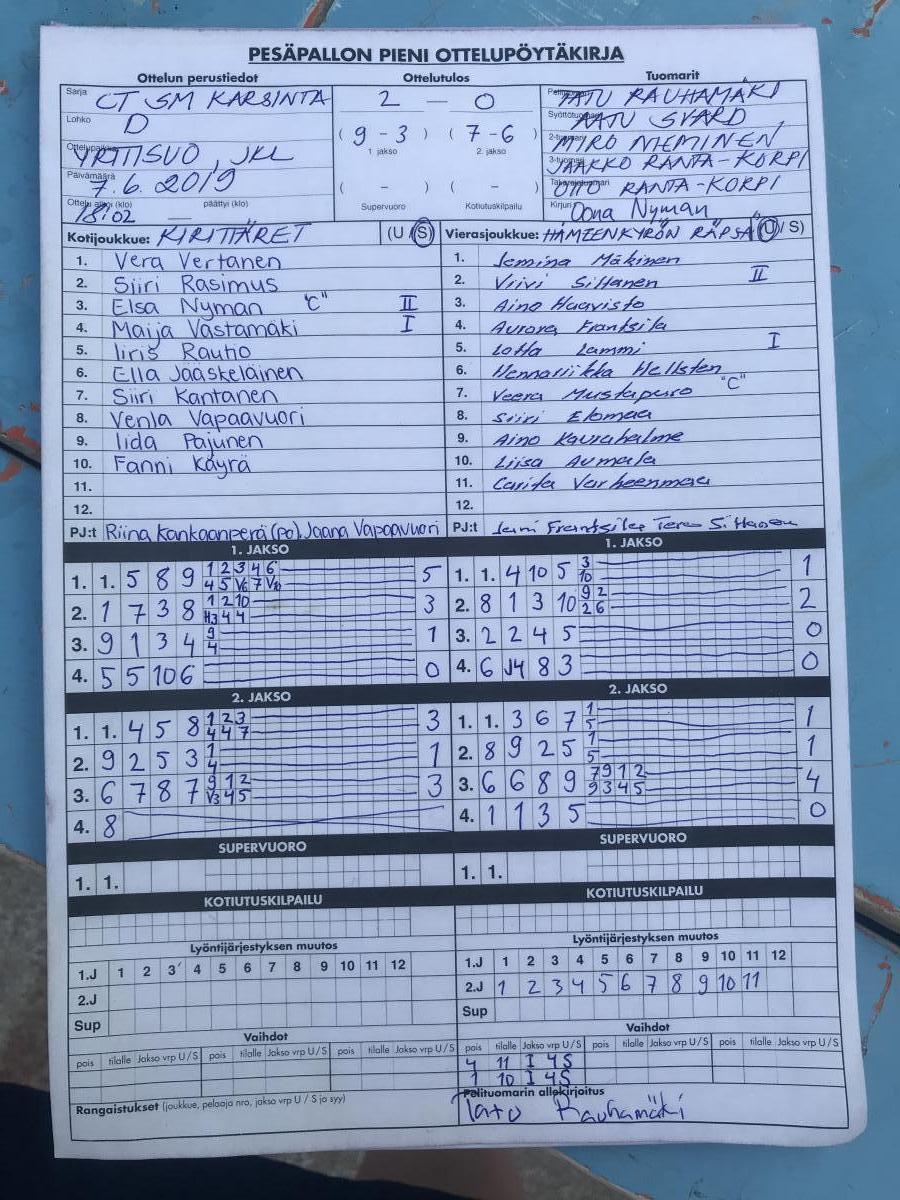 PESÄPALLON PIENI OTTELUPÖYTÄKIRJA
Ottelun perustiedot Ottelutulos Tuomarit
Sarja CT SM KARSINTA
Lohko D
YRTTISUO, JKL
Päivämäärä 7.6.2019
Ottelu alkoi (klo) 18:02 — päättyi (klo)
2 — 0
( 9 - 3 ) ( 7 - 6 )
1. jakso 2. jakso
( - ) ( - )
Supervuoro Kotiutuskilpailu
TATU RAUHAMÄKI
AATU SVÄRD
2-tuomari MIRO NIEMINEN
3-tuomari JAAKKO RANTA-KORPI
Takarajatuomari OTTO RANTA-KORPI
Kirjuri Oona Nyman
Kotijoukkue: KIRITTÄRET (U / S)
1. Vera Vertanen
2. Siiri Rasimus
3. Elsa Nyman "C" II
4. Maija Västämäki I
5. Iiris Rautio
6. Ella Jääskeläinen
7. Siiri Kantanen
8. Venla Vapaavuori
9. Iida Pajunen
10. Fanni Käyrä
11.
12.
PJ:t Riina Kankaanperä (po), Jaana Vapaavuori
Vierasjoukkue: HÄMEENKYRÖN RÄPSÄ (U / S)
1. Jemina Mäkinen
2. Viivi Siltanen II
3. Aino Haavisto
4. Aurora Frantsila
5. Lotta Lammi I
6. Hennariikka Hellsten
7. Veera Mustapuro "C"
8. Siiri Elomaa
9. Aino Kaurahalme
10. Liisa Aumala
11. Carita Varheenmaa
12.
PJ:t Jani Frantsila, Tero Siltanen
1. JAKSO
1. 1. 5 8 9 1 2 3 4 6 5
4 5 V6 7 V10
2. 1 7 3 8 1 2 10 3
H3 4 4
3. 9 1 3 4 9 1
4
4. 5 5 10 6 0
2. JAKSO
1. 1. 4 5 8 1 2 3 3
4 4 7
2. 9 2 5 3 1 1
4
3. 6 7 8 7 9 1 2 3
V3 4 5
4. 8
SUPERVUORO
1. 1.
KOTIUTUSKILPAILU
Lyöntijärjestyksen muutos
1.J 1 2 3 4 5 6 7 8 9 10 11 12
2.J
Sup
Vaihdot
pois tilalle Jakso vrp U / S pois tilalle Jakso vrp U / S pois tilalle Jakso vrp U / S
Rangaistukset (joukkue, pelaaja nro, jakso vrp U / S ja syy)
1. JAKSO
1. 1. 4 10 5 3 1
10
2. 8 1 3 10 9 2 2
2 6
3. 2 2 4 5 0
4. 6 J4 8 3 0
2. JAKSO
1. 1. 3 6 7 1 1
5
2. 8 9 2 5 1 1
5
3. 6 6 8 9 7 9 1 2 4
9 3 4 5
4. 1 1 3 5 0
SUPERVUORO
1. 1.
KOTIUTUSKILPAILU
Lyöntijärjestyksen muutos
1.J 1 2 3 4 5 6 7 8 9 10 11 12
2.J 1 2 3 4 5 6 7 8 9 10 11
Sup
Vaihdot
pois tilalle Jakso vrp U / S pois tilalle Jakso vrp U / S pois tilalle Jakso vrp U / S
4 11 I 4S
1 10 I 4S
Pelituomarin allekirjoitus
Tatu Rauhamäki